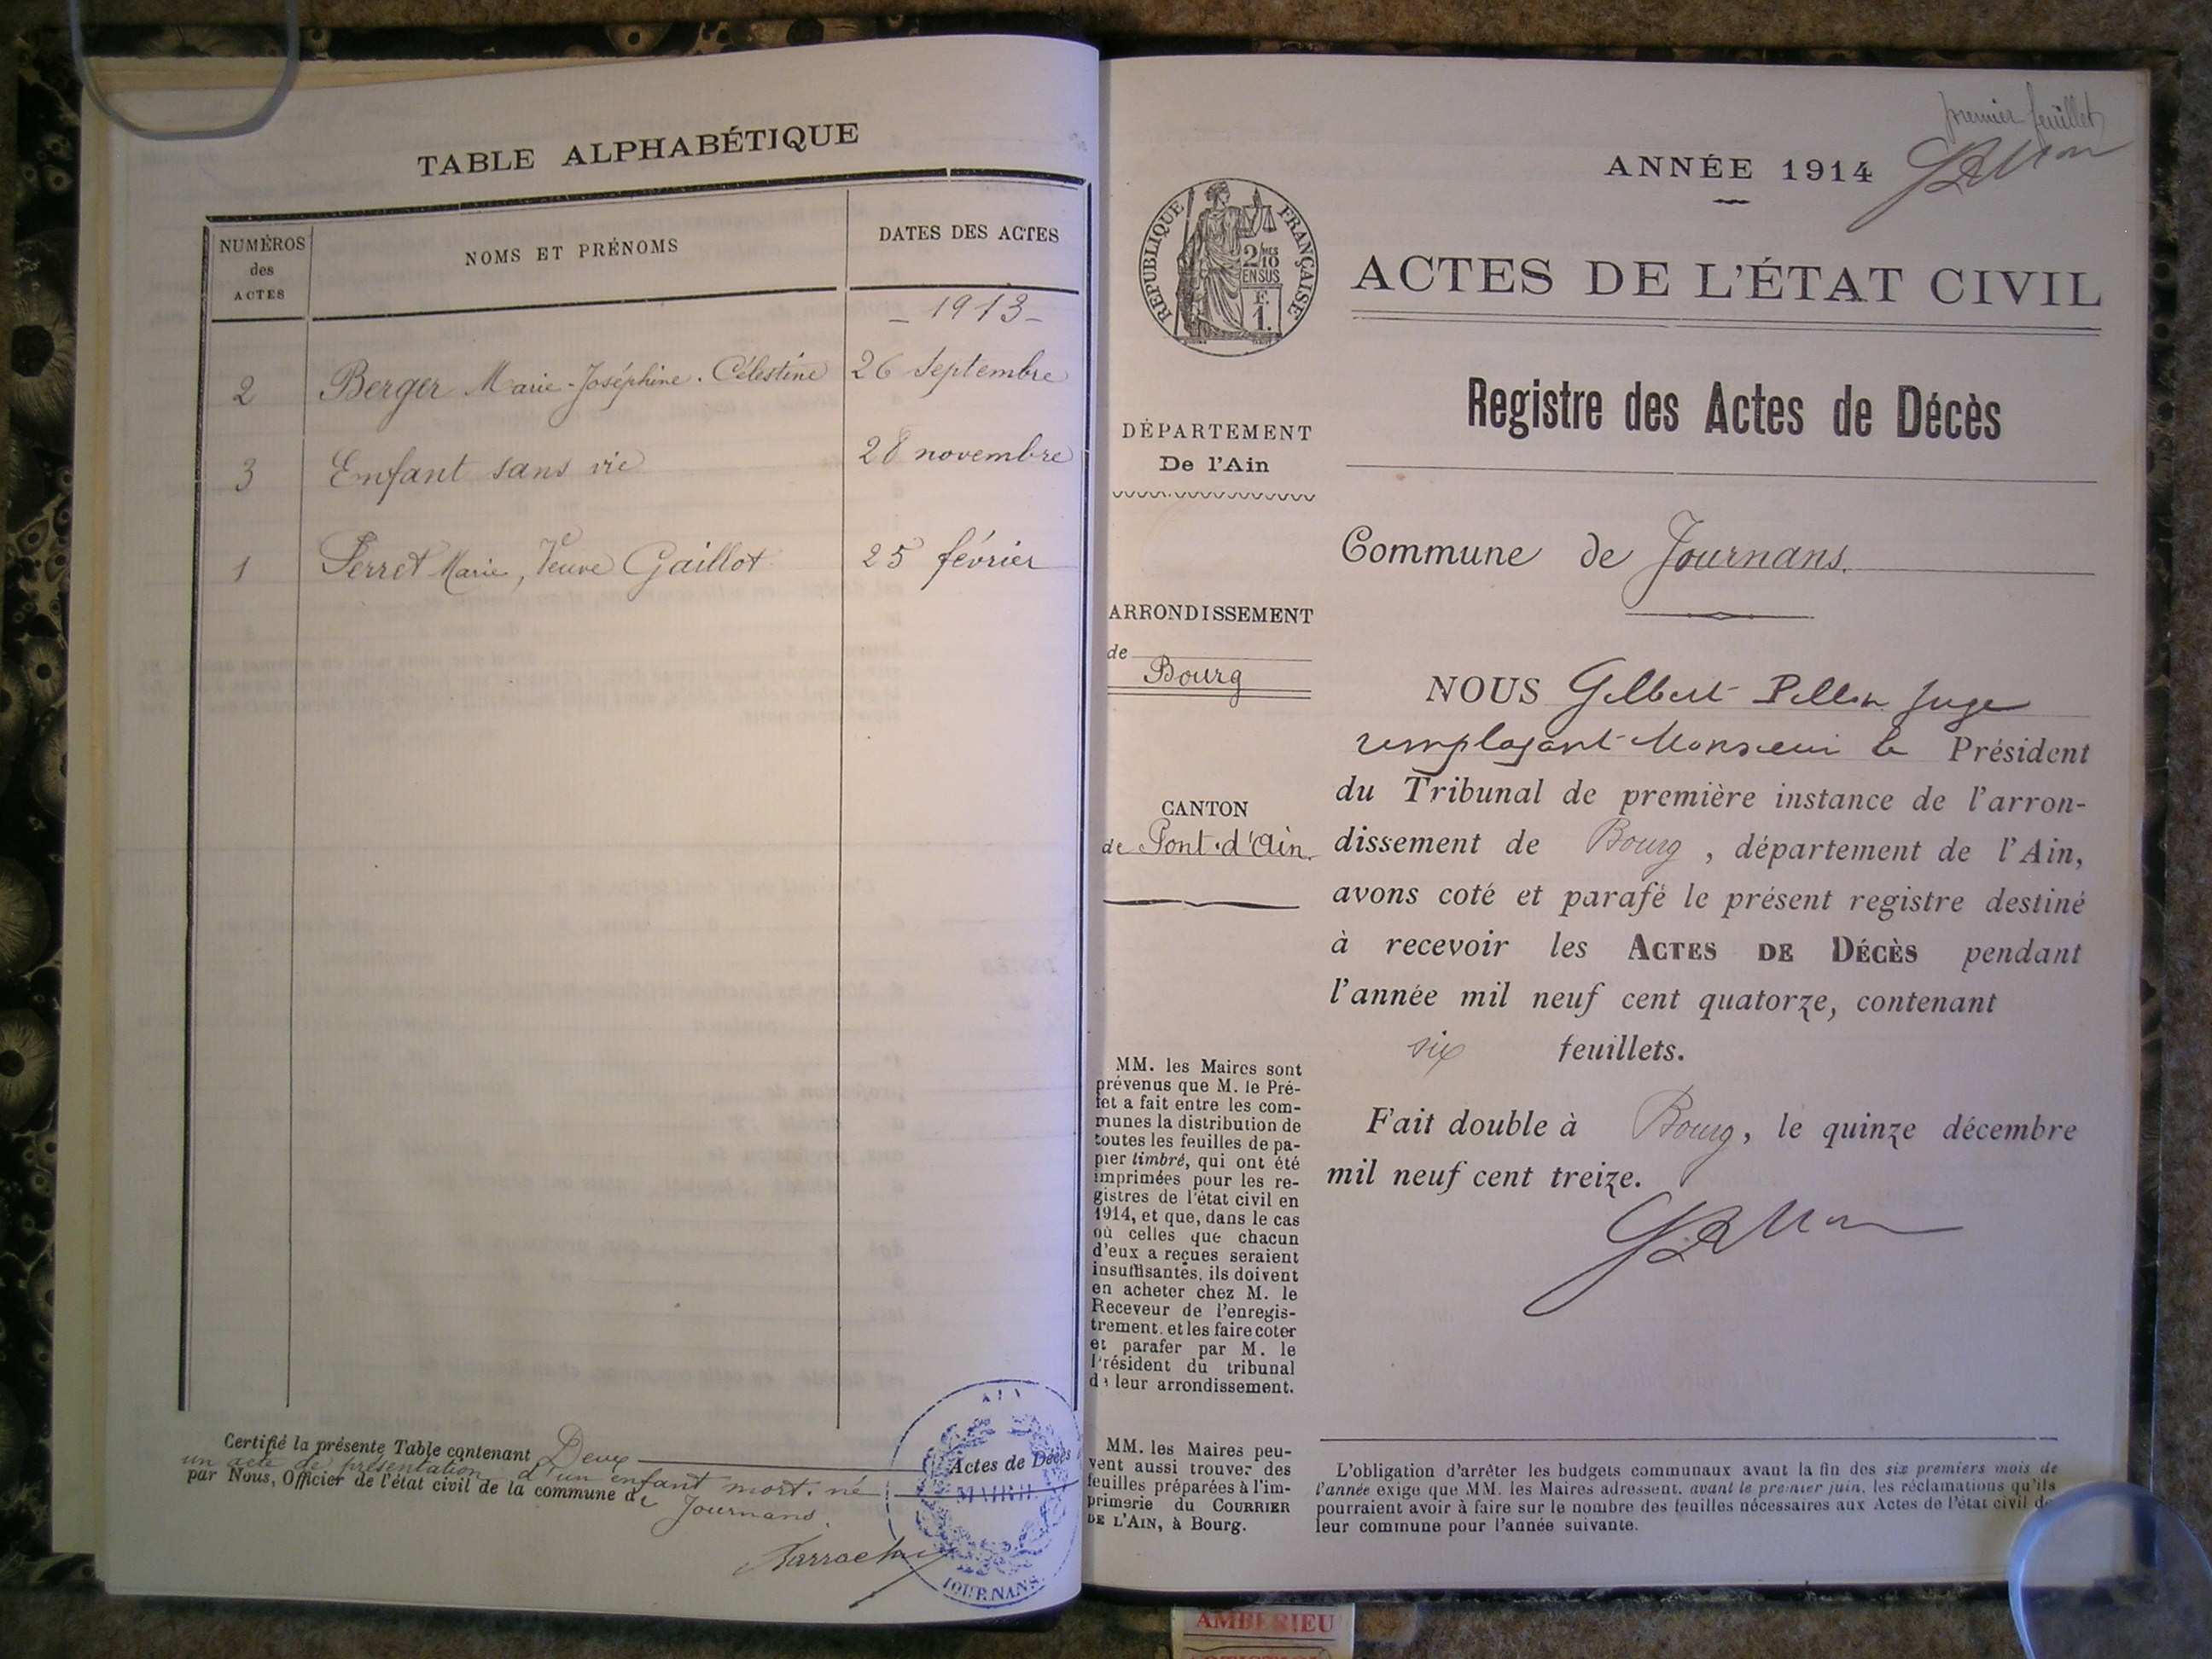 TABLE ALPHABÉTIQUE
NUMÉROS
des
ACTES
NOMS ET PRÉNOMS
DATES DES ACTES
- 1913 -
2 Berger Marie-Joséphine. Célestine 26 septembre
3 Enfant sans vie 28 novembre
1 Perret Marie, Veuve Gaillot 25 février
Certifié la présente Table contenant Deux
un acte de présentation d'un enfant mort-né
par Nous, Officier de l'état civil de la commune de
Journans.
AIN
Actes de Décès
MAIRIE
JOURNANS
premier feuillet
ANNÉE 1914
RÉPUBLIQUE FRANÇAISE
2/10 MES
EN SUS
F.
1.
ACTES DE L'ÉTAT CIVIL
Registre des Actes de Décès
DÉPARTEMENT
De l'Ain
Commune de Journans.
ARRONDISSEMENT
de
Bourg
CANTON
de Pont-d'Ain.
NOUS Gilbert Pellin Juge
remplaçant Monsieur le Président
du Tribunal de première instance de l'arron-
dissement de Bourg, département de l'Ain,
avons coté et parafé le présent registre destiné
à recevoir les ACTES DE DÉCÈS pendant
l'année mil neuf cent quatorze, contenant
six feuillets.
Fait double à Bourg, le quinze décembre
mil neuf cent treize.
MM. les Maires sont
prévenus que M. le Pré-
fet a fait entre les com-
munes la distribution de
toutes les feuilles de pa-
pier timbré, qui ont été
imprimées pour les re-
gistres de l'état civil en
1914, et que, dans le cas
où celles que chacun
d'eux a reçues seraient
insuffisantes, ils doivent
en acheter chez M. le
Receveur de l'enregis-
trement, et les faire coter
et parafer par M. le
Président du tribunal
de leur arrondissement.
MM. les Maires peu-
vent aussi trouver des
feuilles préparées à l'im-
primerie du COURRIER
DE L'AIN, à Bourg.
L'obligation d'arrêter les budgets communaux avant la fin des six premiers mois de
l'année exige que MM. les Maires adressent, avant le premier juin, les réclamations qu'ils
pourraient avoir à faire sur le nombre des feuilles nécessaires aux Actes de l'état civil de
leur commune pour l'année suivante.
AMBERIEU